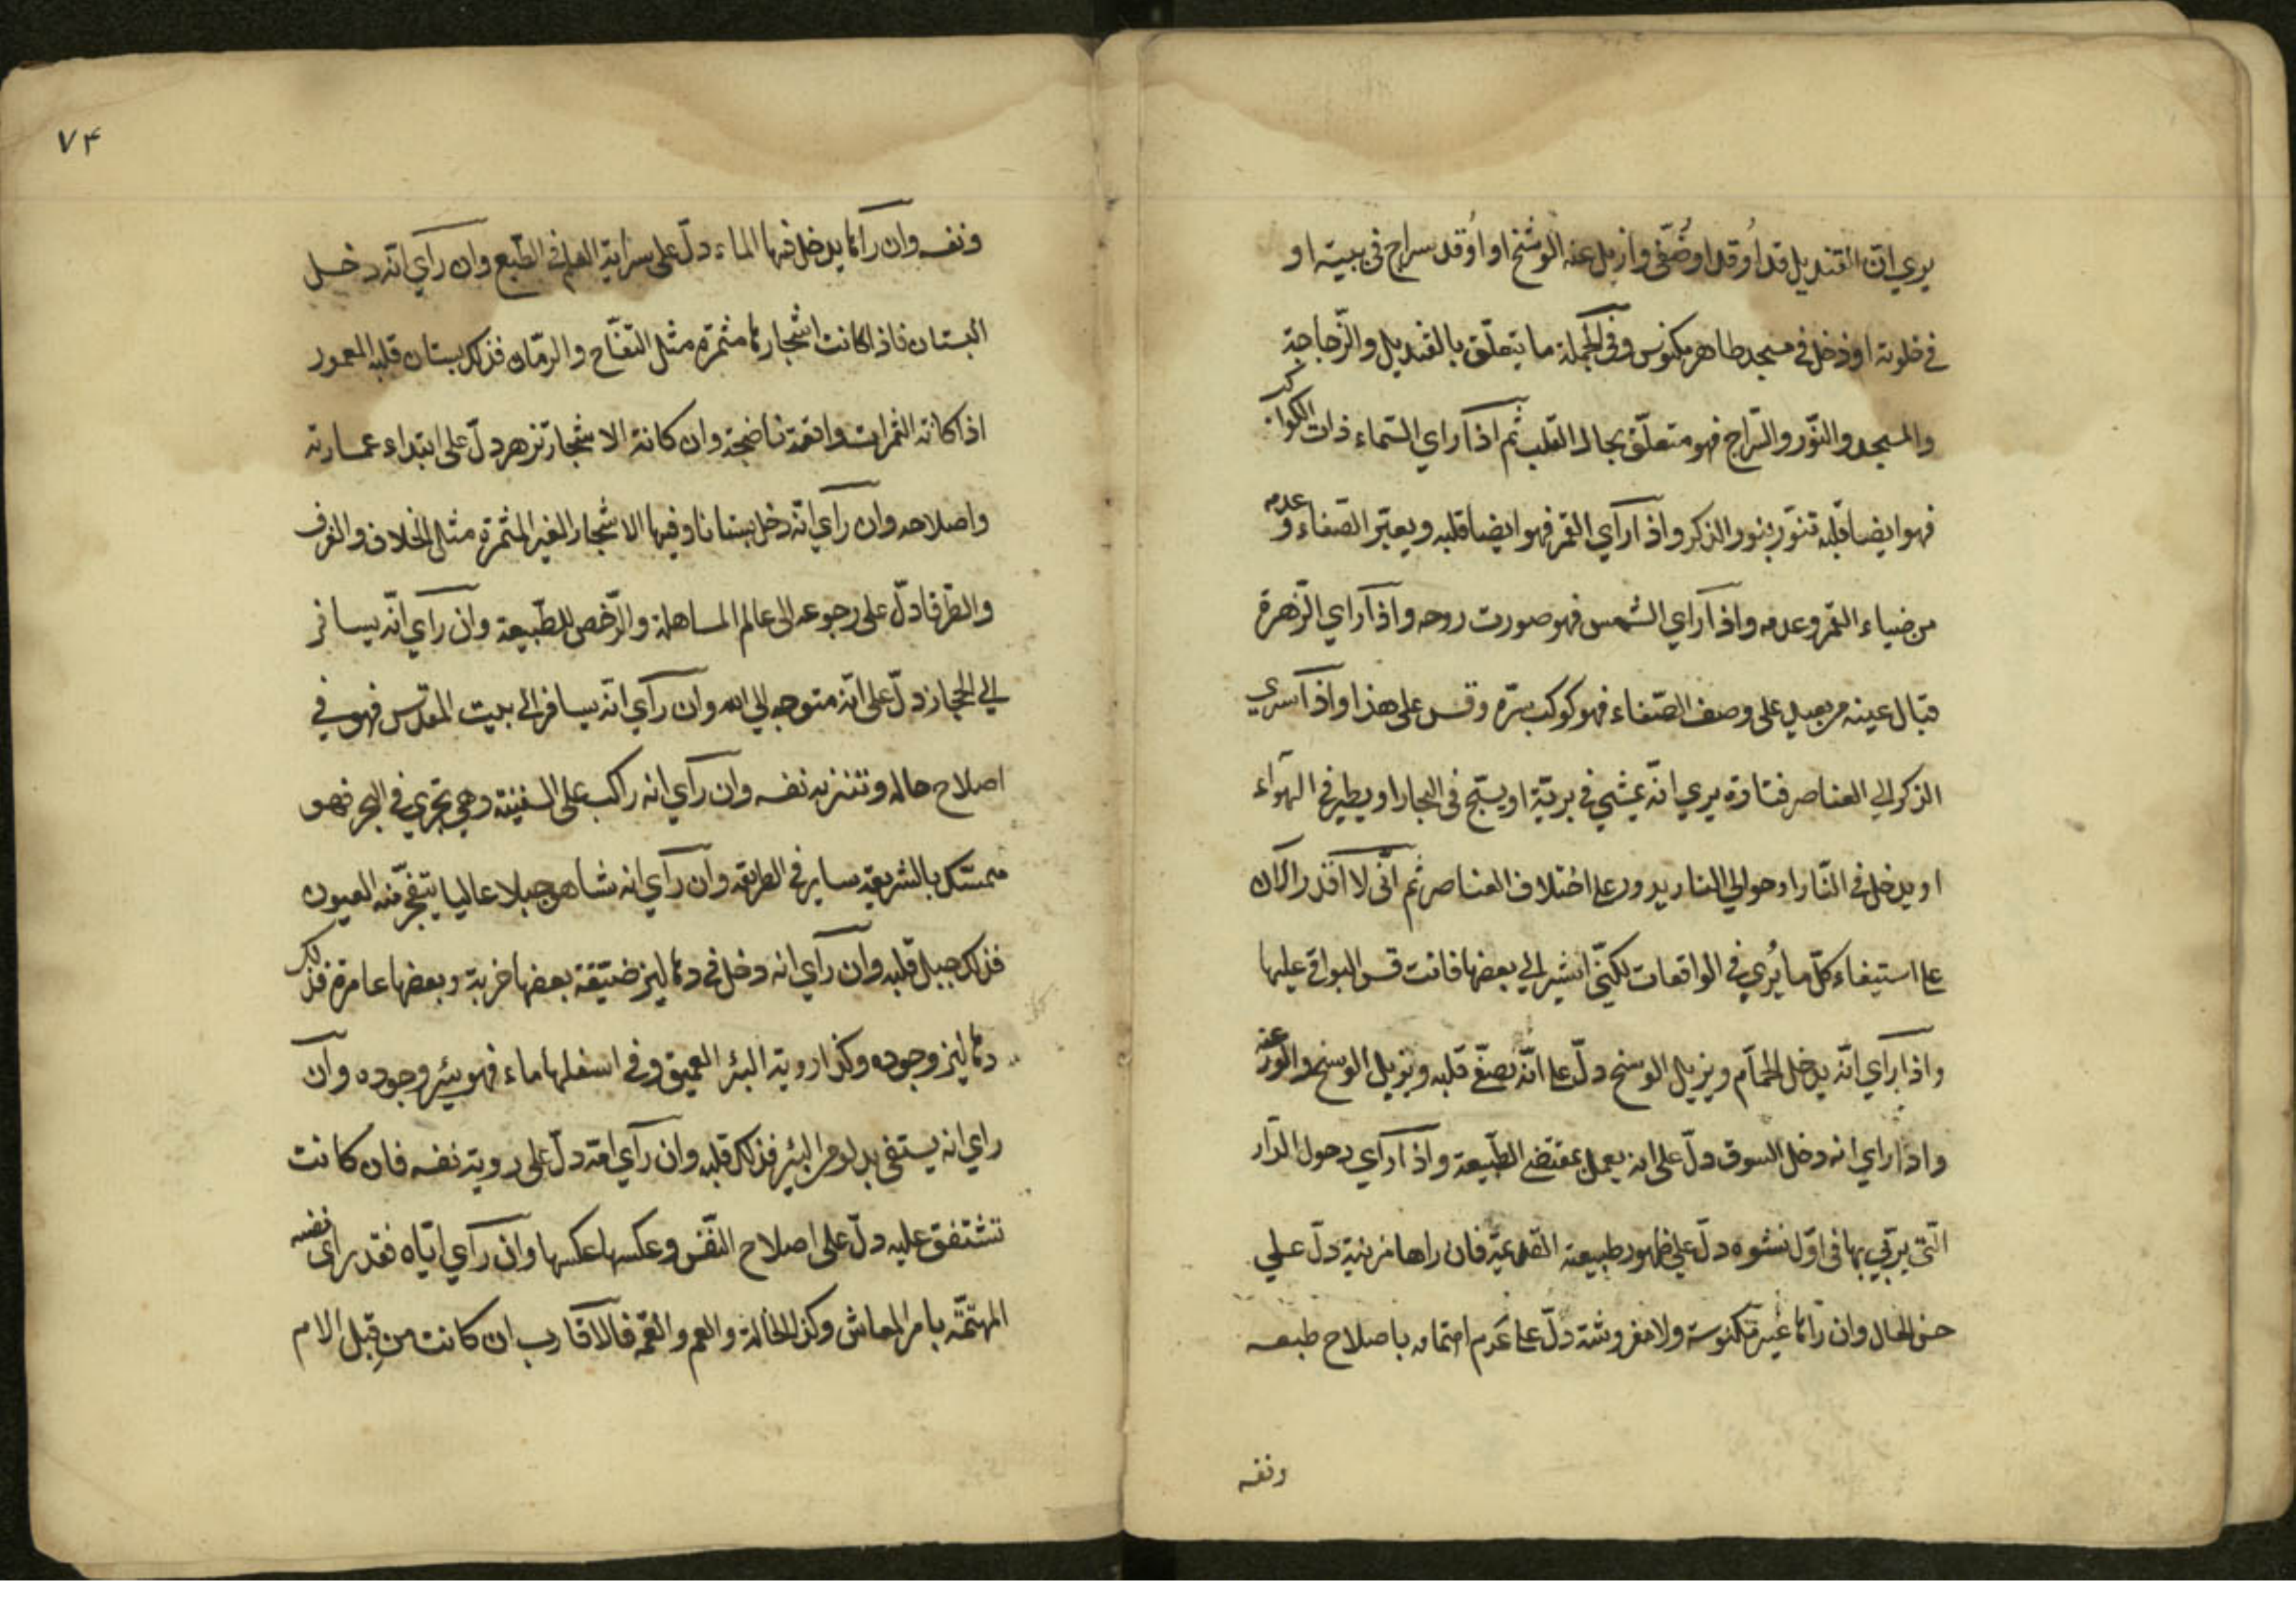 يري انّ القنديل قد اُوقد او صُفّى وازيل عنه الوسخ او اوُقد سراج فى بيته او
في خلوته او دخل في مسجد طاهر مكنوس وفى الجملة ما يتعلّق بالقنديل والزّجاجة
والمسجد والنّور والسّراج فهو متعلّق بحال القلب ثم اذا راي السّماء ذات الكواكب
فهو ايضا قلبه تنوّر بنور الذكر واذا رآي القمر فهو ايضا قلبه ويعتبر الصّفاء وعدمه
من ضياء القمر وعدمه واذا راي الشمس فهو صورت روحه واذا راي الزّهرة
قبال عينه من بعيد على وصف الصّفاء فهو كوكب سرّه وقس على هذا واذا سري
الذكر الي العناصر فتارة يري انّه يمشي في بريّة او يسبّح فى البحار او يطير في الهوآء
او يدخل في النّار او حوالي النار يدور على اختلاف العناصر ثم انّى لا اقدر الآن
على استيفاء كلّ ما يُري في الواقعات لكنّي اشير الي بعضها فانت قس البواقي عليها
واذا رآي انّه يدخل الحمّام ويزيل الوسخ دلّ على انّه يصفّي قلبه ويزيل الوسخ والوزر عنه
واذا راي انه دخل السوق دلّ على انه يعمل بمقتضي الطّبيعة واذا رآي دخول الدّار
الّتي يربّي بها فى اوّل نشوه دلّ علي ظهور طبيعته القديمة فان راها مزينة دلّ علي
حسن الحال وان رآها غير مكنوسة ولا مفروشة دلّ على عدم اهتمامه باصلاح طبعه
ونفسه
٧۴
ونفسه وان رآها يدخل فيها الماء دلّ على سراية العلم في الطّبع وان رآي انّه دخل
البستان فاذا كانت اشجارها مثمرة مثل التّفّاح والرمّان فذلك بستان قلبه المعمور
اذا كانت الثمرات واقعة ناضجة وان كانت الاشجار تزهر دلّ على ابتداء عمارته
واصلاحه وان رآي انّه دخل بستانا وفيها الاشجار الغير المثمرة مثل الخلاف والغرف
والطّرفا دلّ على رجوعه الى عالم المساهلة والرّخص للطّبيعة وان رآي انّه يسافر
الي الحجاز دلّ على انّه متوجه الي الله وان رآي انّه يسافر الي بيت المقدس فهو في
اصلاح حاله وتنزيه نفسه وان رآي انه راكب على السفينة وهي تجري في البحر فهو
متمسّك بالشريعة ساير في الطريقة وان رآي انه شاهد جبلا عاليا يتفجّر منه العيون
فذلك جبل قلبه وان رآي انه دخل في دهاليز ضيّقة بعضها خربة وبعضها عامرة فذلك
دهاليز وجوده وكذا روية البئر العميق وفي اسفلها ماء فهو بئر وجوده وان
راي انه يستقي بدلو من البئر فذلك قلبه وان رآي امّه دلّ على روية نفسه فان كانت
تشتفق عليه دلّ على اصلاح النّفس وعكسها عكسها وان رآي ايّاه فقد راى نفسه
المهتمّة بامر المعاش وكذا الخالة والعم والعمّة فالاقارب ان كانت من قِبل الام